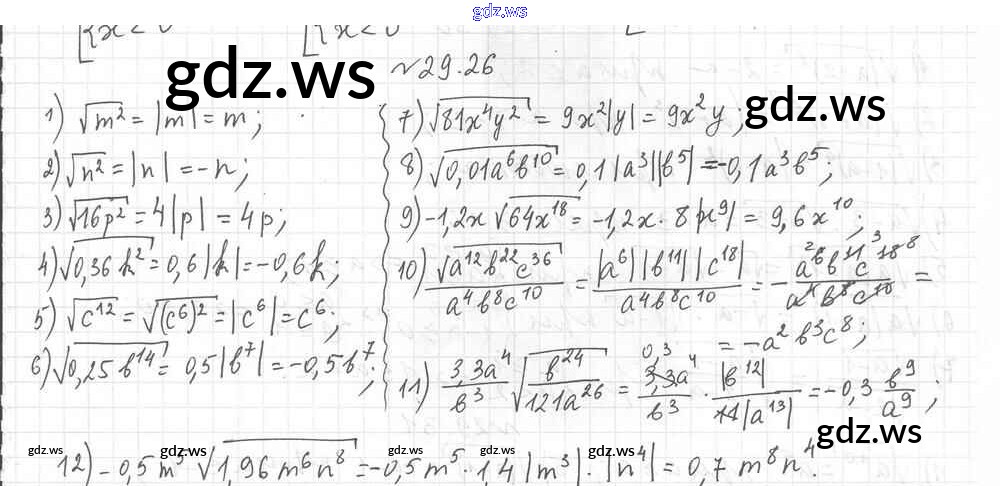 gdz.ws
[{x<0 [{x<0 [
№29.26
gdz.ws
1) √m² = |m| = m;
2) √n² = |n| = -n;
3) √16p² = 4|p| = 4p;
4) √0,36k² = 0,6|k| = -0,6k;
5) √c¹² = √(c⁶)² = |c⁶| = c⁶;
6) √0,25b¹⁴ = 0,5|b⁷| = -0,5b⁷;
7) √81x⁴y² = 9x²|y| = 9x²y;
gdz.ws
8) √0,01a⁶b¹⁰ = 0,1|a³||b⁵| = -0,1a³b⁵;
9) -1,2x√64x¹⁸ = -1,2x · 8|x⁹| = 9,6x¹⁰;
10) √a¹²b²²c³⁶ / a⁴b⁸c¹⁰ = |a⁶||b¹¹||c¹⁸| / a⁴b⁸c¹⁰ = - a⁶b¹¹c¹⁸ / a⁴b⁸c¹⁰ =
= -a²b³c⁸;
11) 3,3a⁴/b³ √b²⁴/121a²⁶ = 3,3a⁴/b³ · |b¹²|/11|a¹³| = -0,3 b⁹/a⁹;
gdz.ws
gdz.ws gdz.ws gdz.ws gdz.ws gdz.ws
12) -0,5m⁵ √1,96m⁶n⁸ = -0,5m⁵ · 1,4|m³| · |n⁴| = 0,7m⁸n⁴.